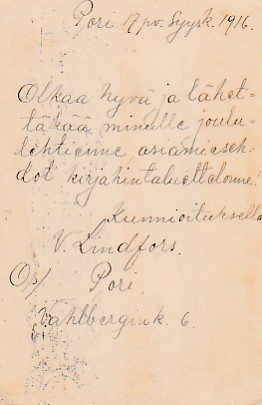 Pori 17 pv. Syysk. 1916.
Olkaa hyvä ja lähet-
täkää minulle joulu-
lehtienne asiamieseh-
dot kirjahintaluettelonne!
Kunnioituksella
V. Lindfors.
Os/ Pori.
Vahlbergink. 6.